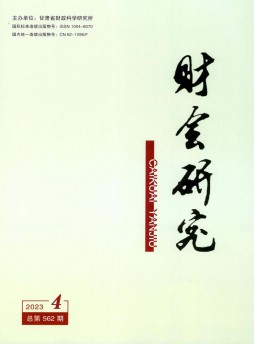 主办单位：甘肃省财政科学研究所
国际标准连续出版物号：ISSN 1004-6070
国内统一连续出版物号：CN 62-1096/F
财会研究
CAIKUAI YANJIU
2023 4
总第 562 期